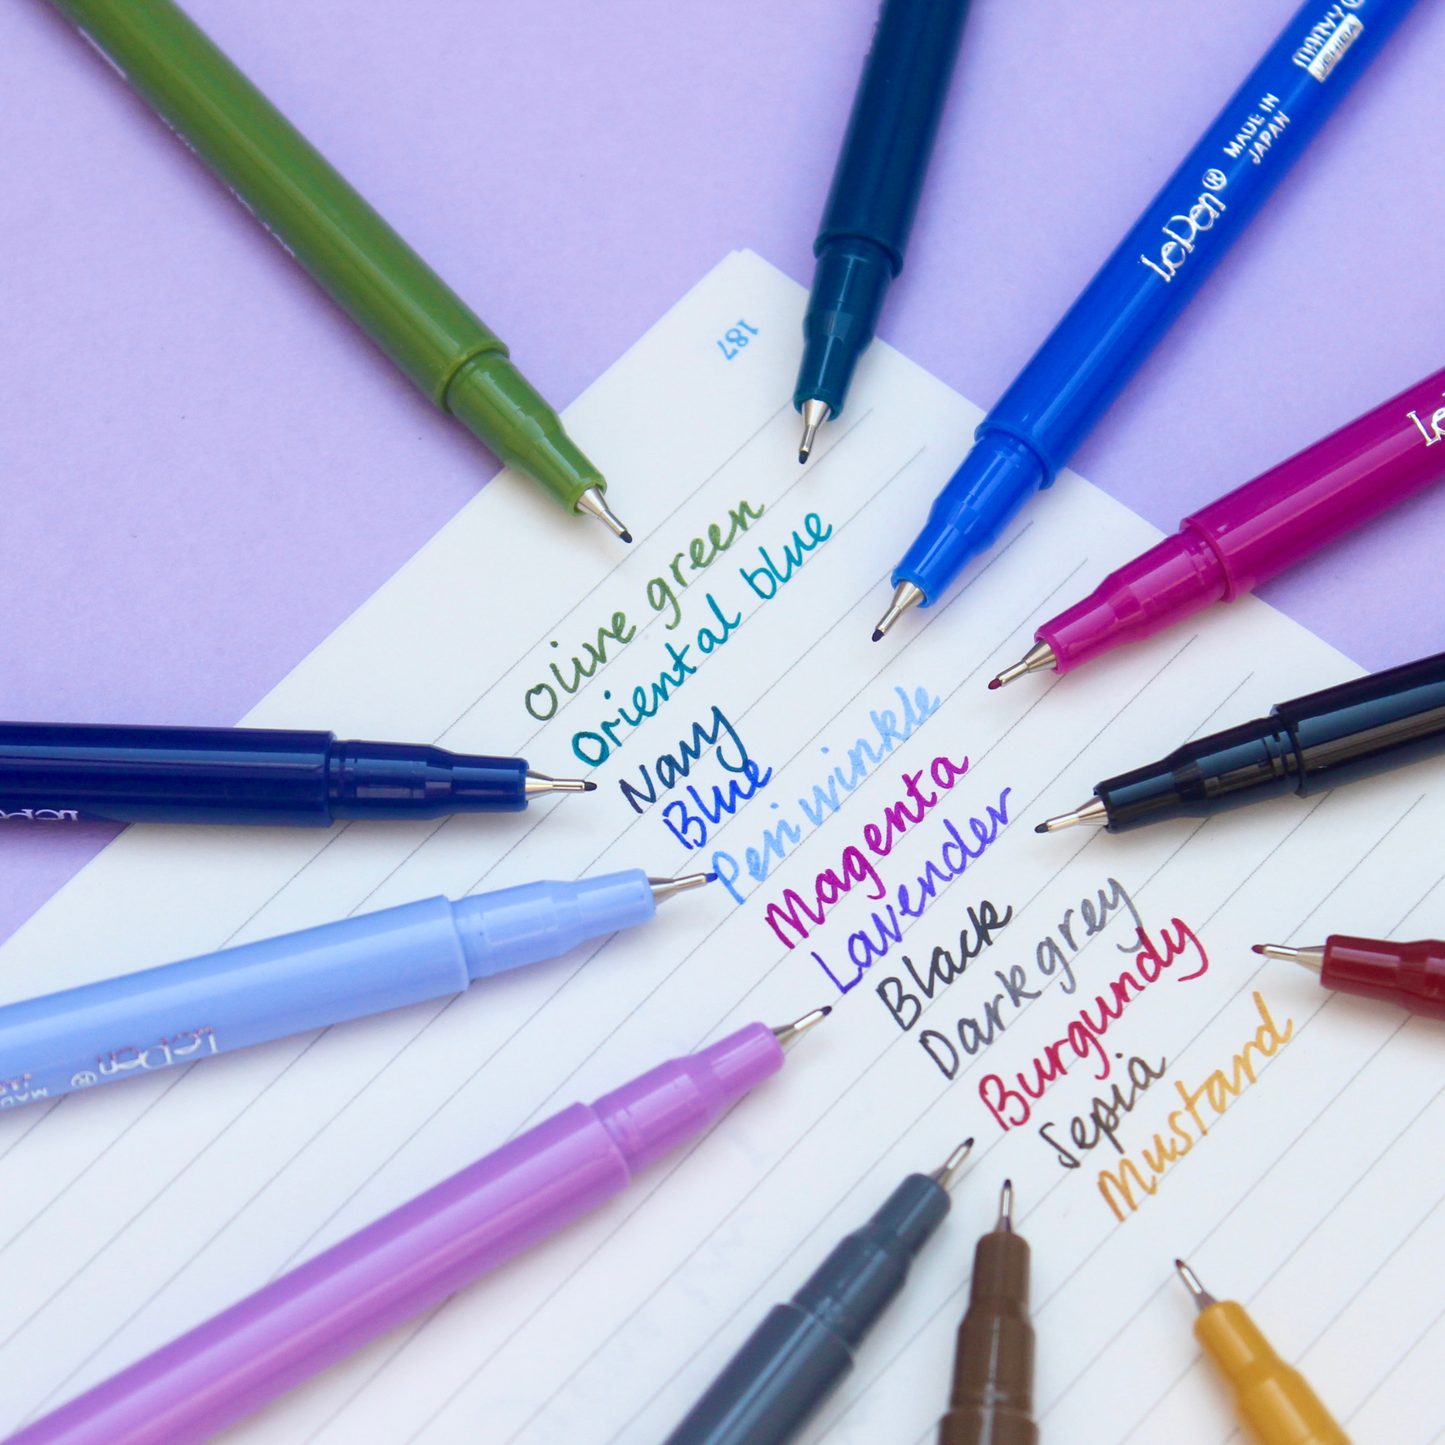 marvy®
UCHIDA
MADE IN
JAPAN
LePen®
Le
187
olive green
Oriental blue
Navy
Blue
Periwinkle
Magenta
Lavender
Black
Dark grey
Burgundy
Sepia
Mustard
LeP
LePen®
MAD